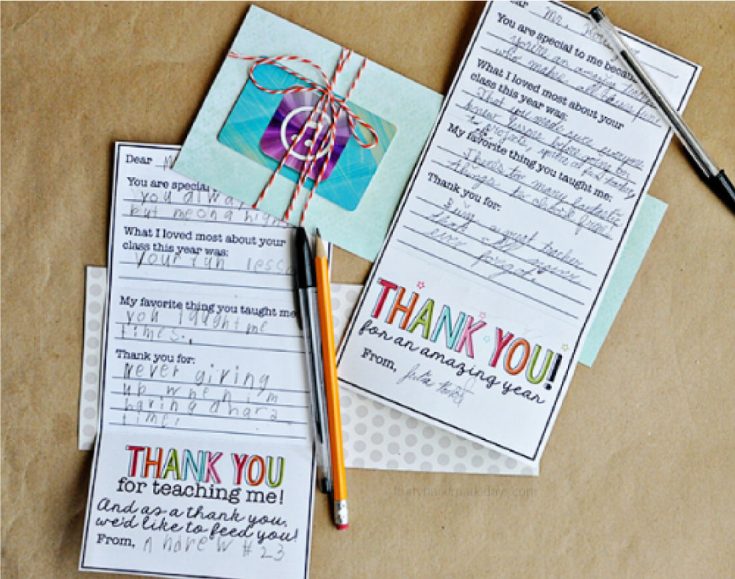 Dear
You are special
you alway
but me on a high
What I loved most about your
class this year was:
your fun lesso
My favorite thing you taught me
you taught me
times.
Thank you for:
Never giving
up when im
having a hard
time!
THANK YOU
for teaching me!
And as a thank you,
we'd like to feed you!
From, Andrew #23
Dear Mr.
You are special to me because
you're an amazing
who makes all
What I loved most about your
class this year was:
That you made sure everyone
knew before going on
My favorite thing you taught me:
Thanks for many fantastic
things
Thank you for:
Being a great teacher
that I'll never
ever forget.
THANK YOU!
for an amazing year
From,